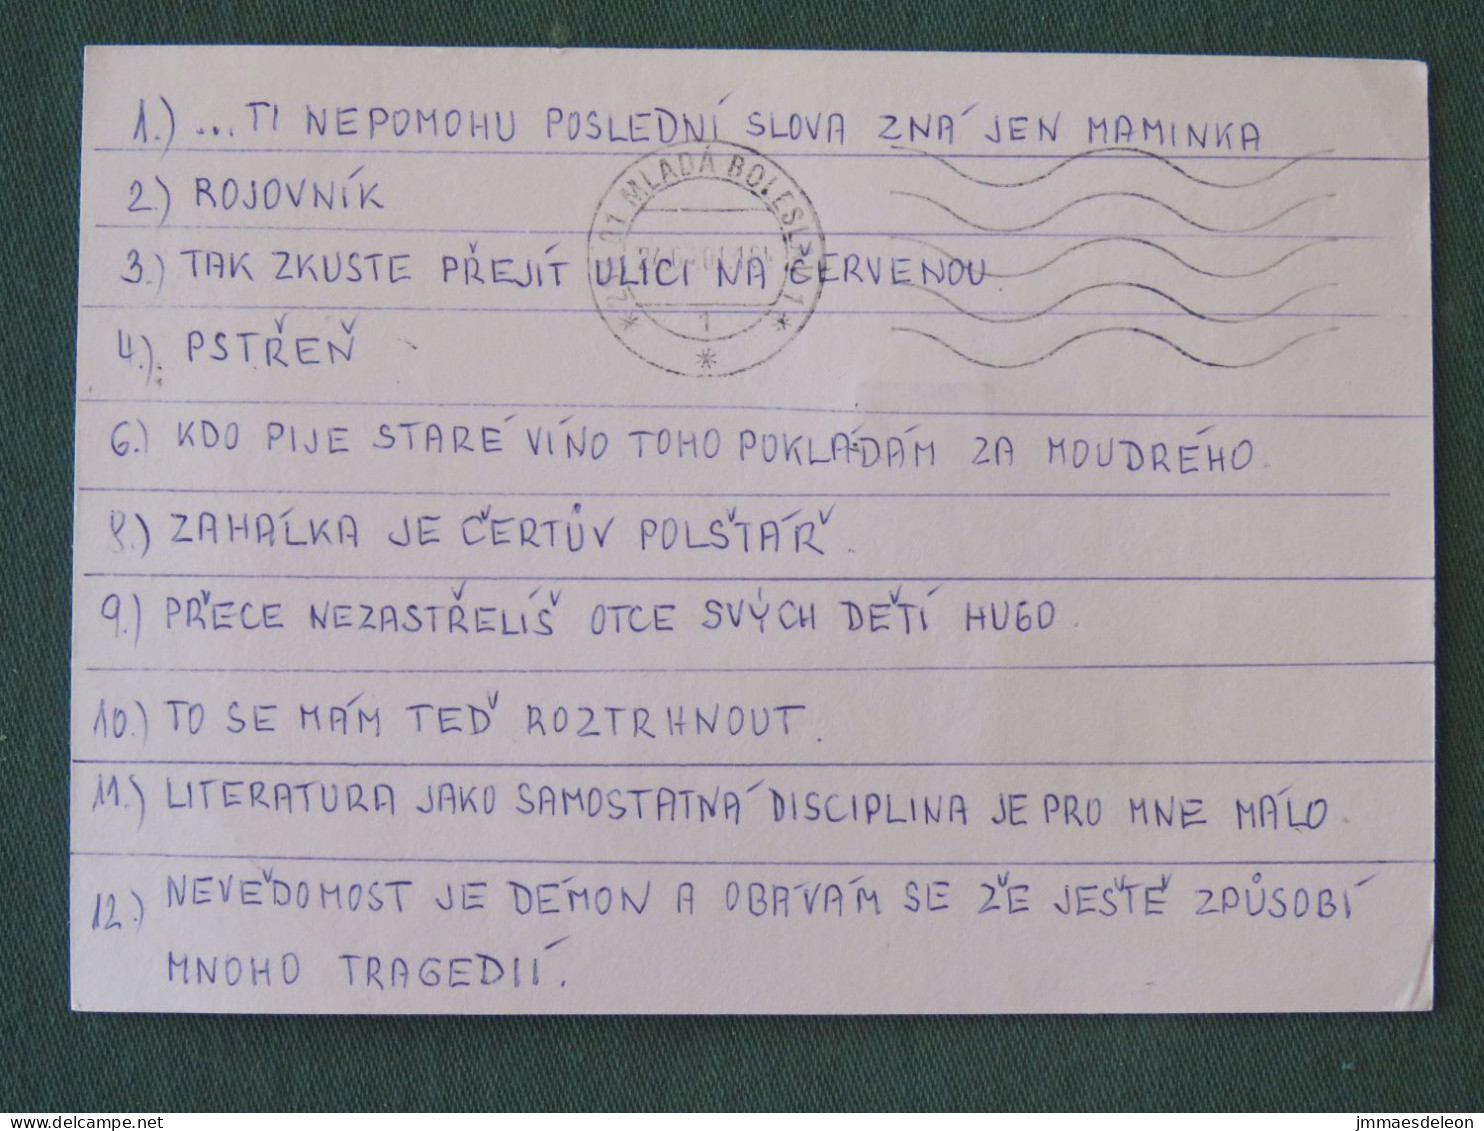 1.) ... TI NEPOMOHU POSLEDNÍ SLOVA ZNÁ JEN MAMINKA
2.) ROJOVNÍK
3.) TAK ZKUSTE PŘEJÍT ULICI NA ČERVENOU
4.) PSTŘEŇ
6.) KDO PIJE STARÉ VÍNO TOHO POKLÁDÁM ZA MOUDRÉHO.
8.) ZAHÁLKA JE ČERTŮV POLŠTÁŘ.
9.) PŘECE NEZASTŘELÍŠ OTCE SVÝCH DĚTÍ HUGO.
10.) TO SE MÁM TEĎ ROZTRHNOUT.
11.) LITERATURA JAKO SAMOSTATNÁ DISCIPLINA JE PRO MNE MÁLO.
12.) NEVĚDOMOST JE DÉMON A OBÁVÁM SE ŽE JEŠTĚ ZPŮSOBÍ
MNOHO TRAGEDIÍ.
01 MLADÁ BOLESLAV 1
1
jmmaesdeleon